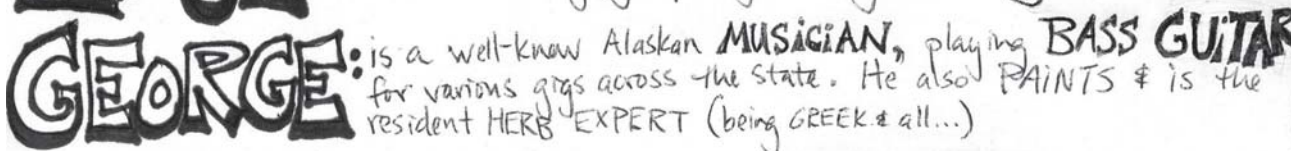 GEORGE: is a well-know Alaskan MUSiCiAN, playing BASS GUiTAR
for various gigs across the state. He also PAiNTS & is the
resident HERB EXPERT (being GREEK & all...)